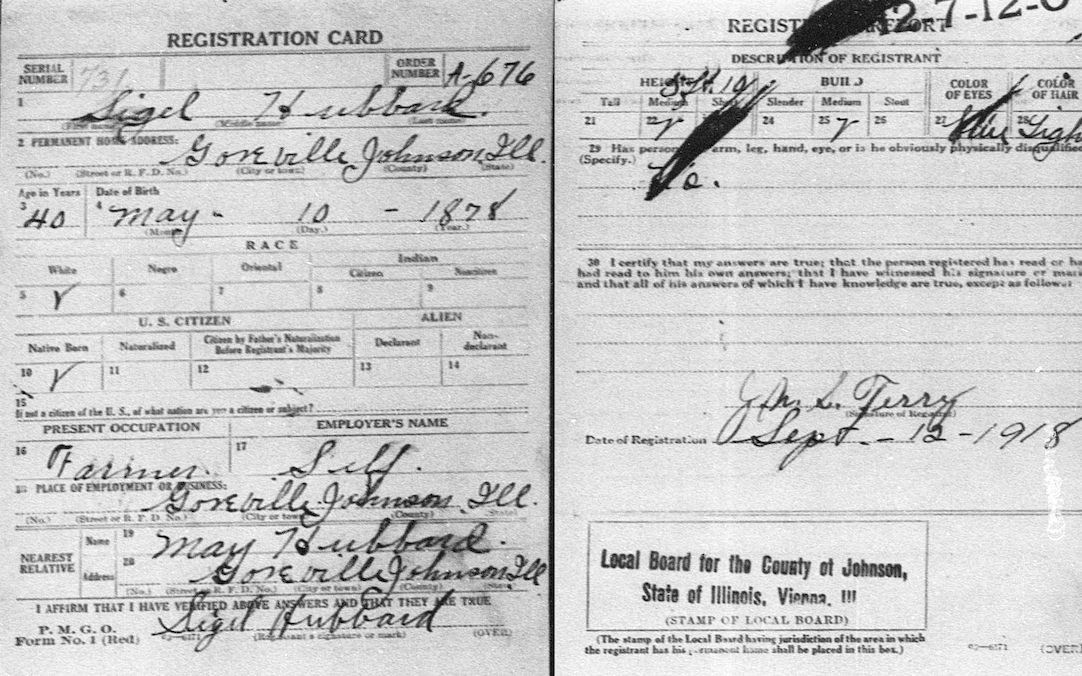 REGISTRATION CARD
SERIAL NUMBER 731 ORDER NUMBER A-676
1 Sigel Hubbard.
(First name) (Middle name) (Last name)
2 PERMANENT HOME ADDRESS:
Goreville Johnson Ill.
(No.) (Street or R. F. D. No.) (City or town) (County) (State)
Age in Years Date of Birth
3 40 4 May - 10 - 1878
(Month) (Day.) (Year.)
RACE
White Negro Oriental Indian
Citizen Noncitizen
5 6 7 8 9
U. S. CITIZEN ALIEN
Native Born Naturalized Citizen by Father's Naturalization Before Registrant's Majority Declarant Non-declarant
10 11 12 13 14
15
If not a citizen of the U. S., of what nation are you a citizen or subject?
PRESENT OCCUPATION EMPLOYER'S NAME
16 Farmer. 17 Self.
18 PLACE OF EMPLOYMENT OR BUSINESS:
Goreville Johnson, Ill.
(No.) (Street or R. F. D. No.) (City or town) (County) (State)
NEAREST RELATIVE Name 19 May Hubbard.
Address 20 Goreville Johnson Ill
(No.) (Street or R. F. D. No.) (City or town) (County) (State)
I AFFIRM THAT I HAVE VERIFIED ABOVE ANSWERS AND THAT THEY ARE TRUE
P. M. G. O.
Form No. 1 (Red) Sigel Hubbard
(Registrant's signature or mark) (OVER)
REGISTRAR'S REPORT
DESCRIPTION OF REGISTRANT
HEIGHT BUILD COLOR OF EYES COLOR OF HAIR
Tall Medium Short Slender Medium Stout
21 22 24 25 26 27 Blue 28 Light
29 Has person arm, leg, hand, eye, or is he obviously physically disqualified
(Specify.)
No.
30 I certify that my answers are true; that the person registered has read or ha
had read to him his own answers; that I have witnessed his signature or mark
and that all of his answers of which I have knowledge are true, except as follows:
S. Terry
(Signature of Registrar)
Date of Registration Sept. - 12 - 1918
Local Board for the County of Johnson,
State of Illinois, Vienna, Ill
(STAMP OF LOCAL BOARD)
(The stamp of the Local Board having jurisdiction of the area in which
the registrant has his permanent home shall be placed in this box.)
(OVER)